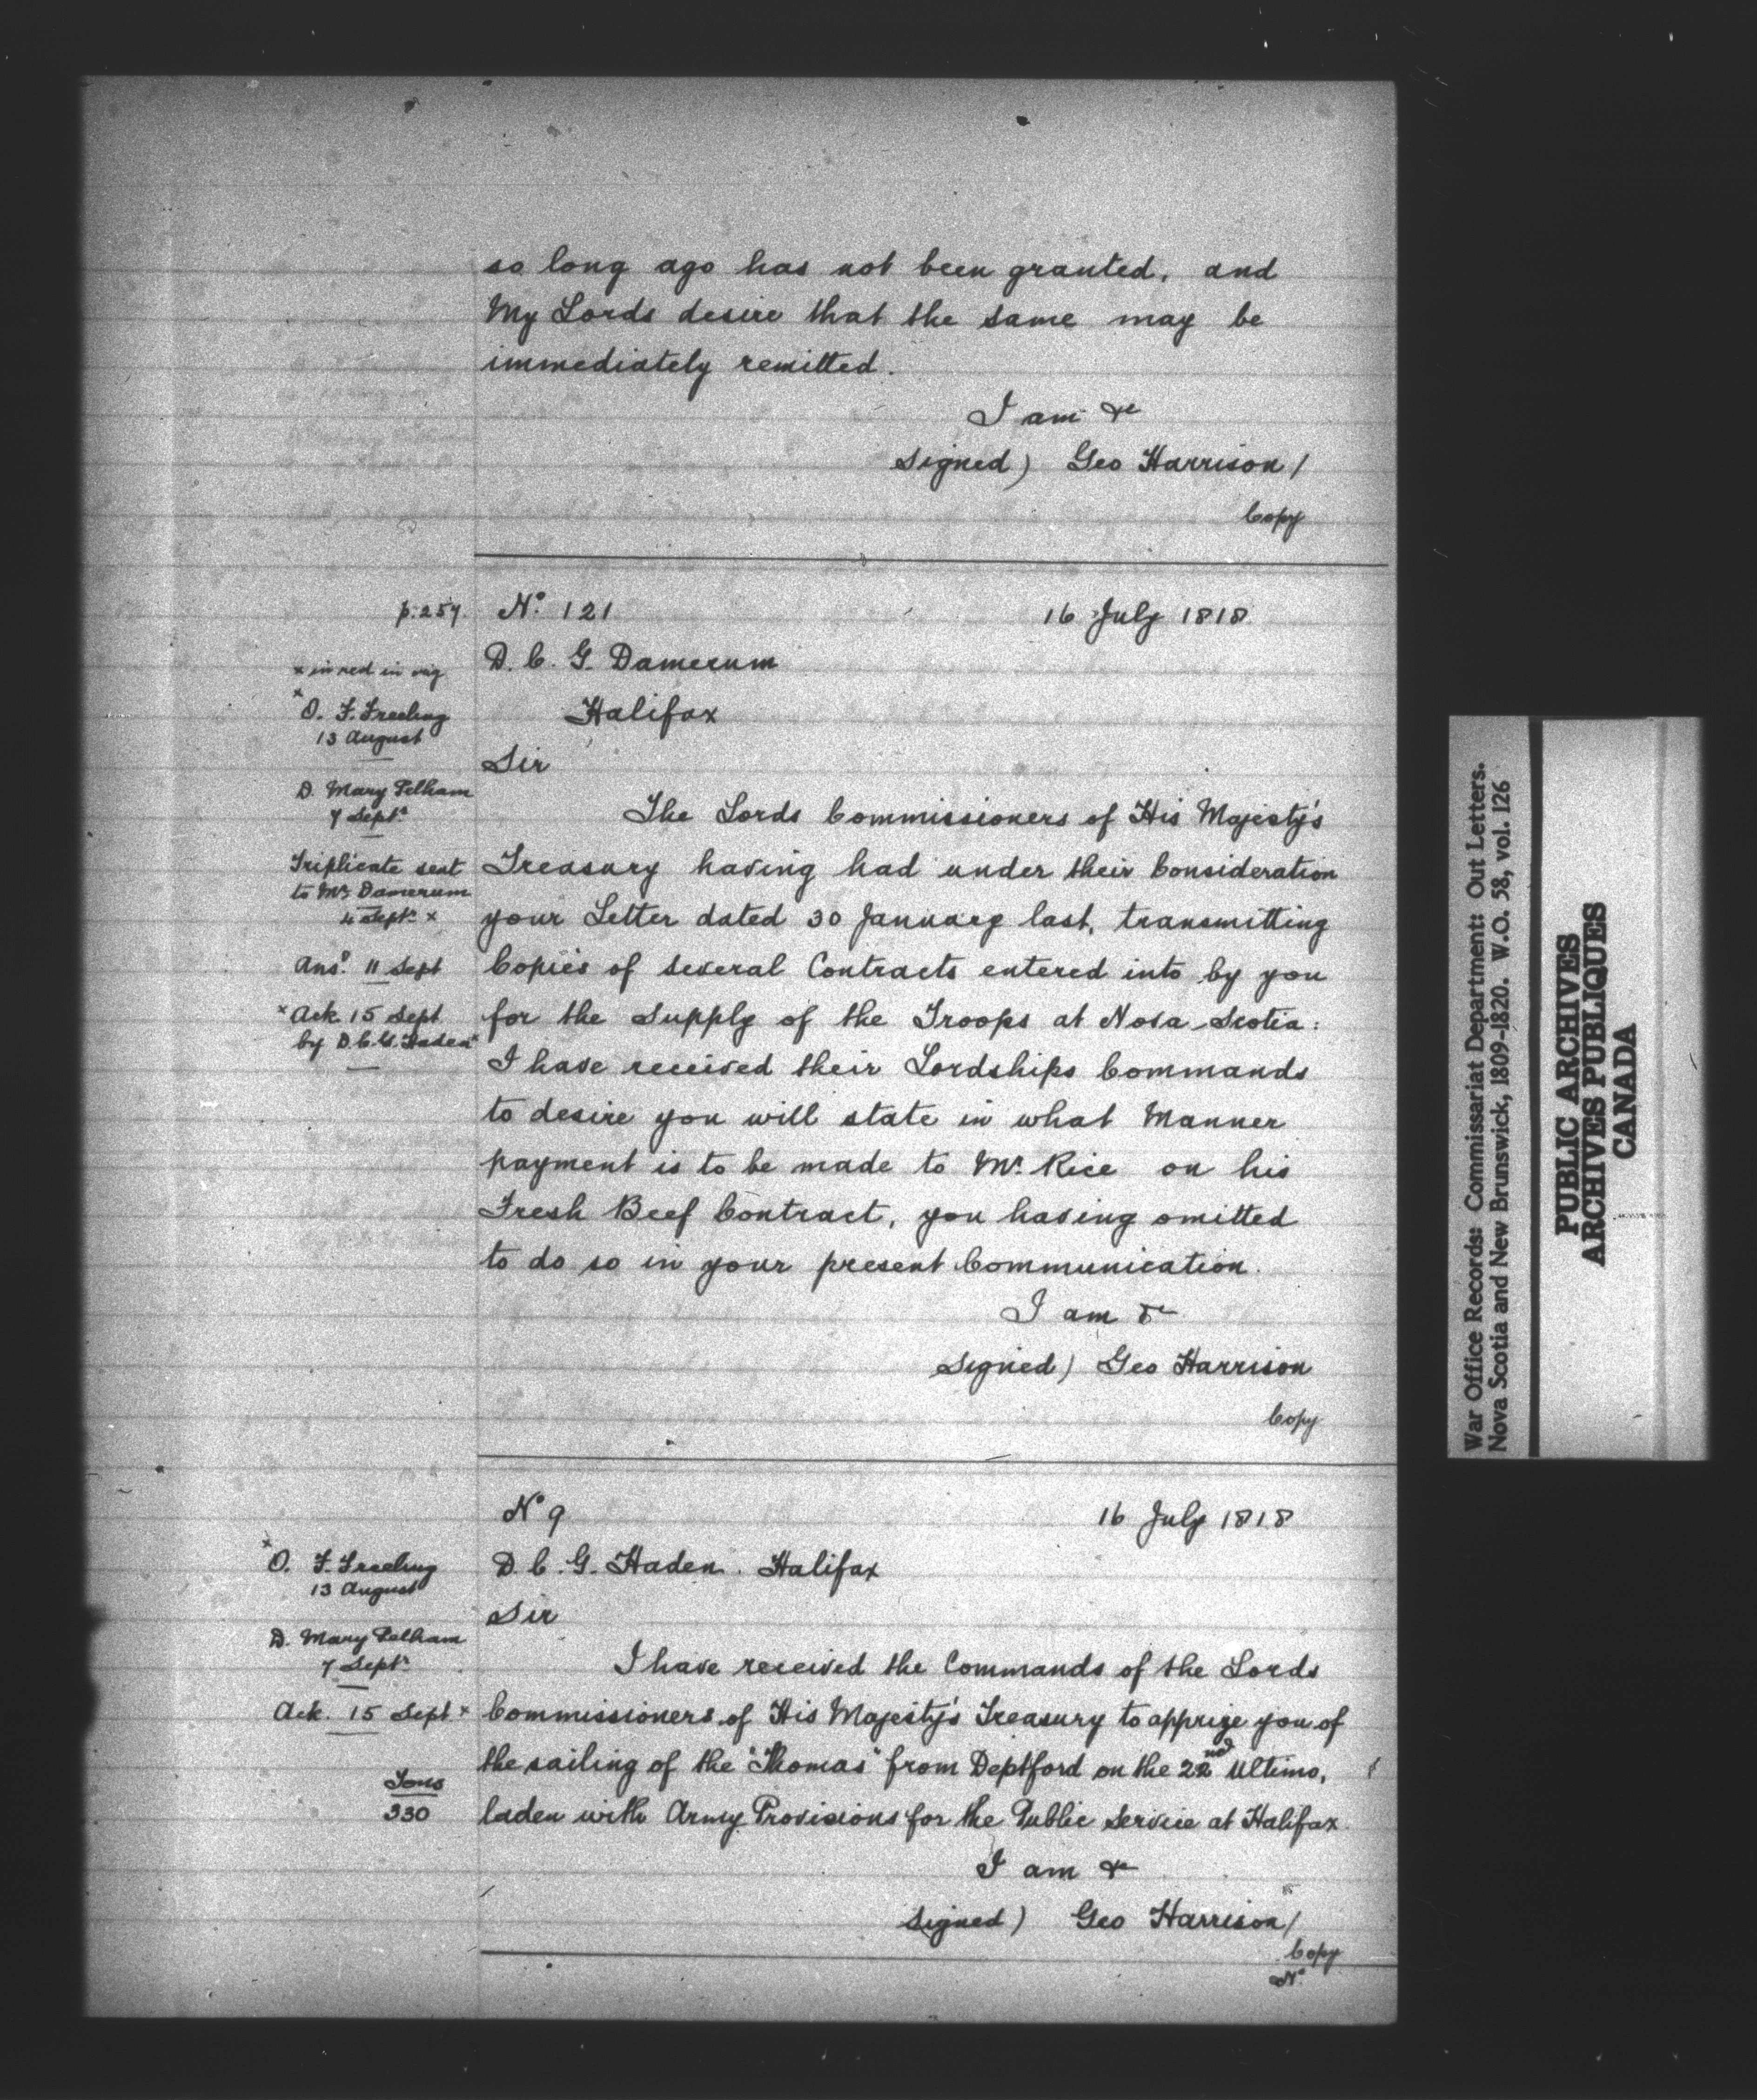 so long ago has not been granted, and
My Lords desire that the same may be
immediately remitted.
I am &c
Signed) Geo Harrison /
Copy
p. 257. No. 121 16 July 1818
D. C. G. Damerum
Halifax
Sir
The Lords Commissioners of His Majesty's
Treasury having had under their Consideration
your Letter dated 30 January last, transmitting
Copies of several Contracts entered into by you
for the Supply of the Troops at Nova Scotia:
I have received their Lordships Commands
to desire you will state in what Manner
payment is to be made to Mr. Rice on his
Fresh Beef Contract, you having omitted
to do so in your present Communication.
I am &c
Signed) Geo Harrison
Copy
x in red in orig
x
O. F. Freeling
13 August
D. Mary Pelham
7 Septr
Triplicate sent
to Mr. Damerum
4 Septr. x
Ansd. 11 Sept
x Ack 15 Sept
by D.C.G. Haden x
No 9 16 July 1818
D. C. G. Haden. Halifax
Sir
I have received the Commands of the Lords
Commissioners of His Majesty's Treasury to apprize you of
the sailing of the "Thomas" from Deptford on the 22nd Ultimo,
laden with Army Provisions for the Public Service at Halifax.
I am &c
Signed) Geo Harrison /
Copy
No.
x
O. F. Freeling
13 August
D. Mary Pelham
7 Septr.
Ack. 15 Sept. x
Tons
330
War Office Records: Commissariat Department: Out Letters.
Nova Scotia and New Brunswick, 1809-1820. W.O. 58, vol. 126
PUBLIC ARCHIVES
ARCHIVES PUBLIQUES
CANADA